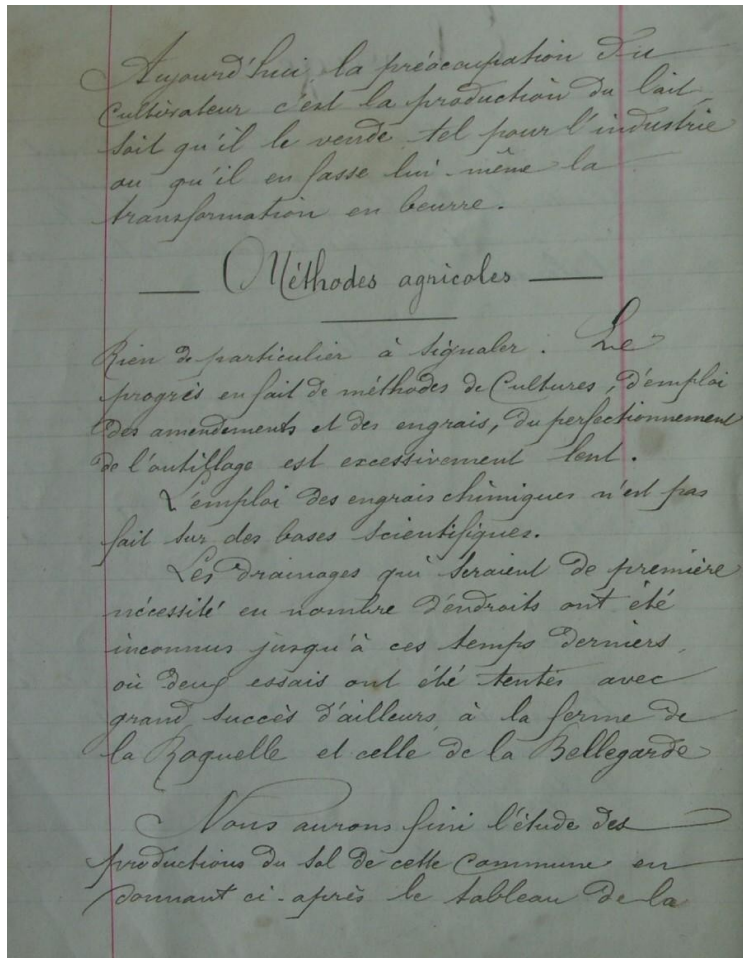 Aujourd'hui, la préoccupation du
Cultivateur c'est la production du lait,
soit qu'il le vende tel pour l'industrie
ou qu'il en fasse lui-même la
transformation en beurre.
— Méthodes agricoles —
Rien de particulier à signaler. Le
progrès en fait de méthodes de Cultures, d'emploi
des amendements et des engrais, du perfectionnement
de l'outillage est excessivement lent.
L'emploi des engrais chimiques n'est pas
fait sur des bases scientifiques.
Les drainages qui seraient de première
nécessité en nombre d'endroits ont été
inconnus jusqu'à ces temps derniers,
où deux essais ont été tentés avec
grand succès d'ailleurs, à la ferme de
la Roquelle et celle de la Bellegarde
Nous aurons fini l'étude des
productions du sol de cette Commune en
donnant ci-après le tableau de la